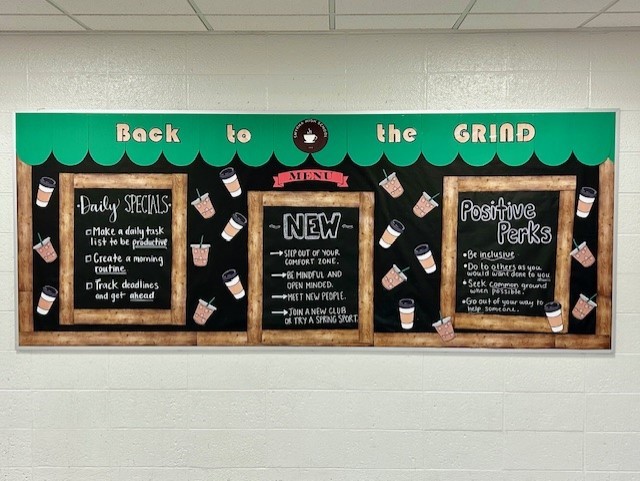 Back to the GRIND
MENU
Daily SPECIALS
Make a daily task
list to be productive
Create a morning
routine.
Track deadlines
and get ahead
NEW
STEP OUT OF YOUR
COMFORT ZONE.
BE MINDFUL AND
OPEN MINDED.
MEET NEW PEOPLE.
JOIN A NEW CLUB
OR TRY A SPRING SPORT.
Positive
Perks
Be inclusive
Do to others as you
would want done to you
Seek common ground
when possible.
Go out of your way to
help someone.